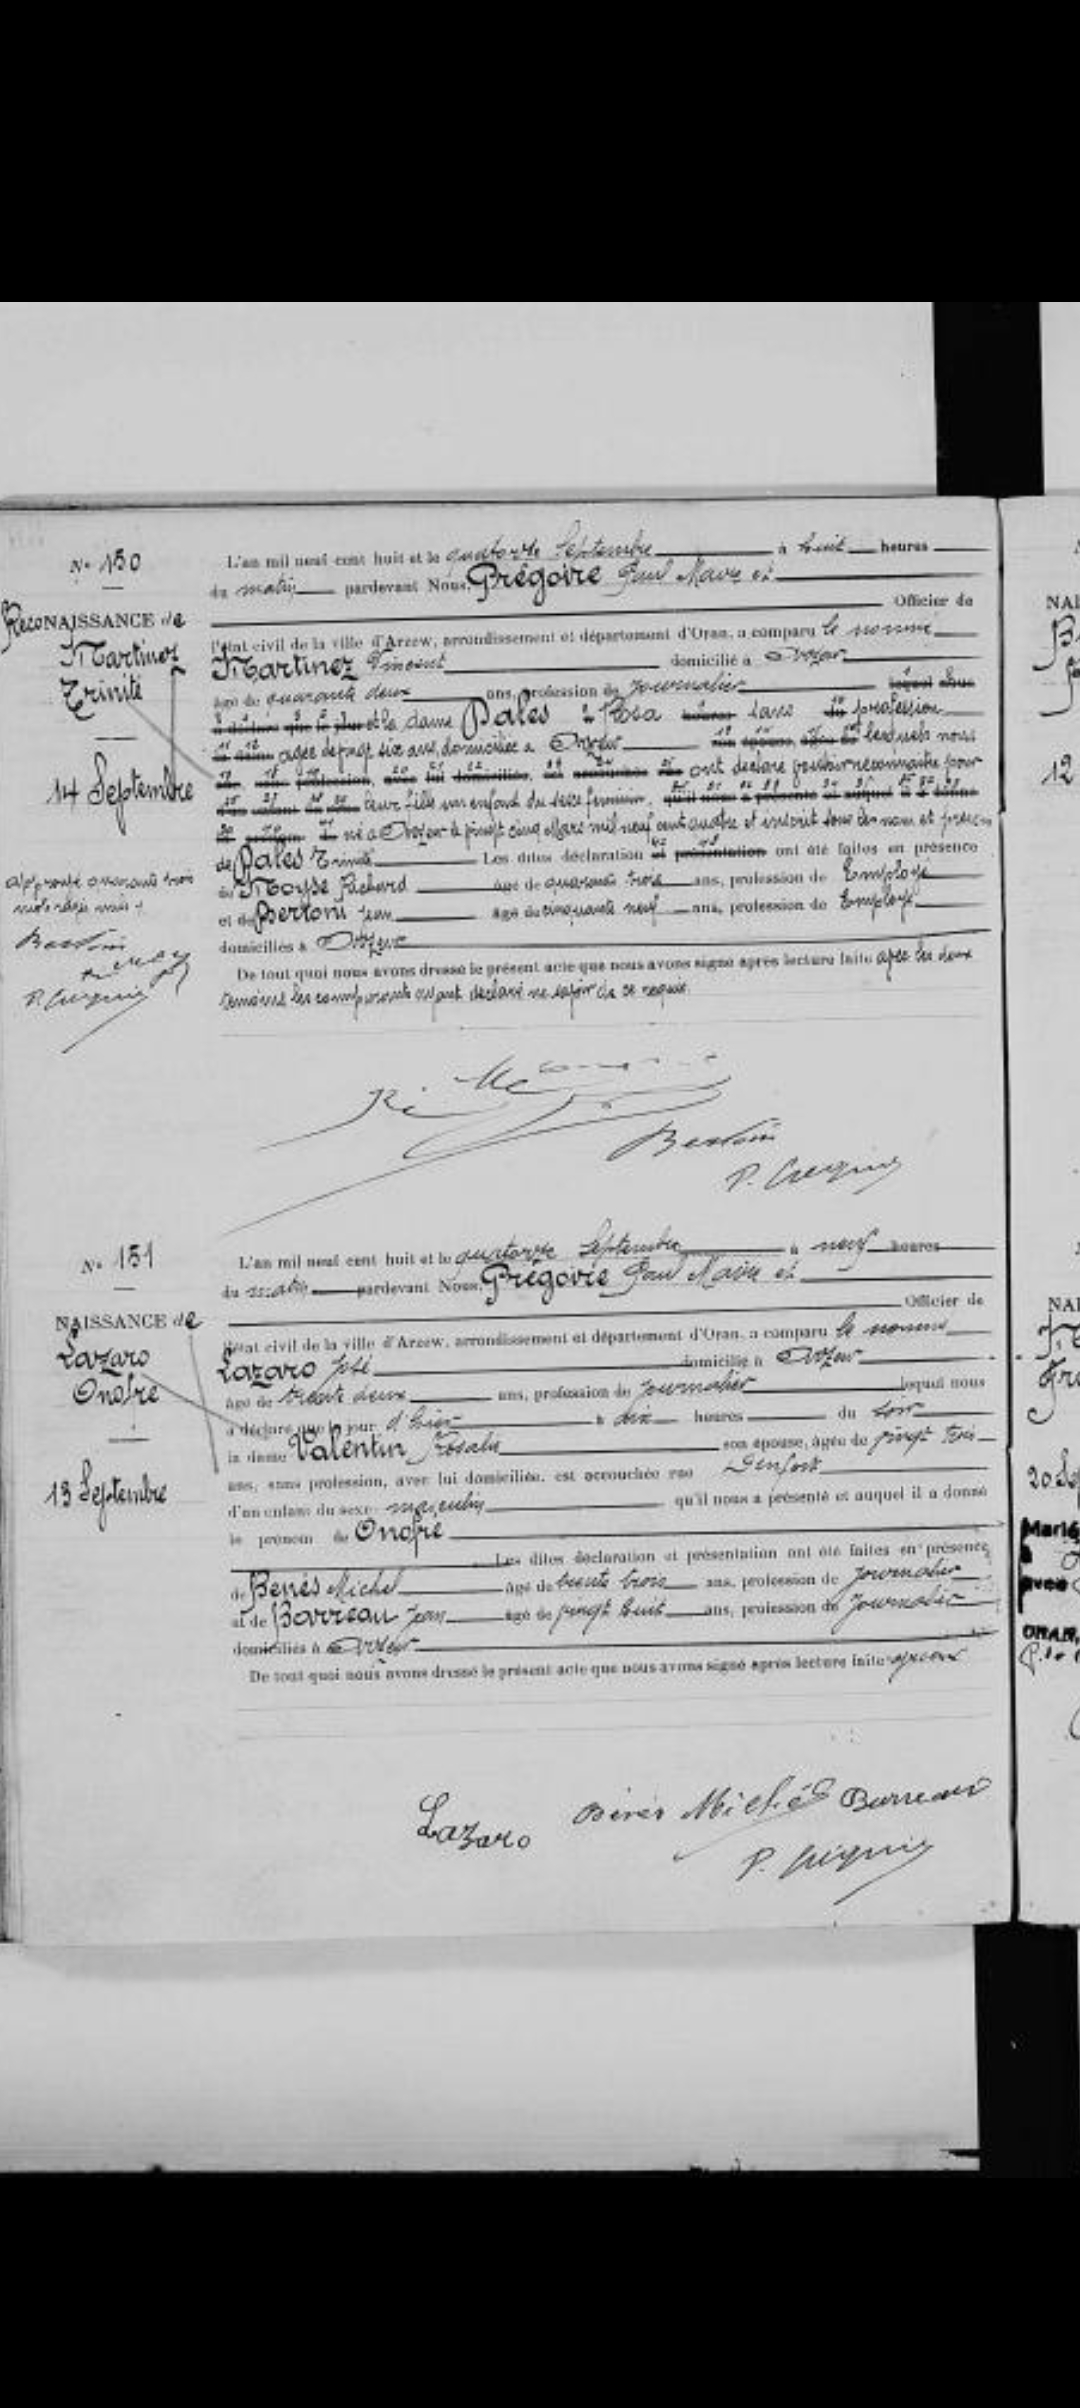 N° 150
RECONAISSANCE de
Martinez
Trinité
14 Septembre
approuvé quarante trois
mots rayés nuls
Bertoni
L'an mil neuf cent huit et le quatorze Septembre à huit heures
du matin pardevant Nous, Grégoire Paul Maire et
Officier de
l'État civil de la ville d'Arzew, arrondissement et département d'Oran, a comparu le nommé
Martinez Vincent domicilié à Arzew
âgé de quarante deux ans, profession de Journalier lequel nous
a déclaré que le jour et la dame Pales Rosa sans profession
agée de vingt six ans, domiciliée a Arzew lesquels nous
ont déclaré vouloir reconnaitre pour
leur fille un enfant du sexe feminin, qu'il nous a présenté et auquel il a donné
né a Arzew le vingt cinq Mars mil neuf cent quatre et inscrit sous les nom et prénom
de Pales Trinité Les dites déclaration et présentation ont été faites en présence
de Moyse Richard âgé de quarante trois ans, profession de Employé
et de Bertoni Jean âgé de cinquante neuf ans, profession de Employé
domiciliés à Arzew
De tout quoi nous avons dressé le présent acte que nous avons signé après lecture faite avec les deux
temoins les comparants ayant declaré ne savoir de ce requis.
Bertoni
N° 151
NAISSANCE de
Lazaro
Onofre
13 Septembre
L'an mil neuf cent huit et le quatorze Septembre à neuf heures
du matin pardevant Nous, Grégoire Paul Maire et
Officier de
l'État civil de la ville d'Arzew, arrondissement et département d'Oran, a comparu le nommé
Lazaro José domicilié à Arzew
âgé de trente deux ans, profession de Journalier lequel nous
a déclaré que le jour d'hier à dix heures du soir
la dame Valentin Rosalie son épouse, âgée de vingt trois
ans, sans profession, avec lui domiciliée, est accouchée rue Denfert
d'un enfant du sexe masculin qu'il nous a présenté et auquel il a donné
le prénom de Onofre
Les dites déclaration et présentation ont été faites en présence
de Benés Michel âgé de trente trois ans, profession de Journalier
et de Barreau Jean âgé de vingt huit ans, profession de Journalier
domiciliés à Arzew
De tout quoi nous avons dressé le présent acte que nous avons signé après lecture faite
Lazaro Benés Michél Barreau
NAI
12
NAI
20 Sep
Marié
à
avec
ORAN,